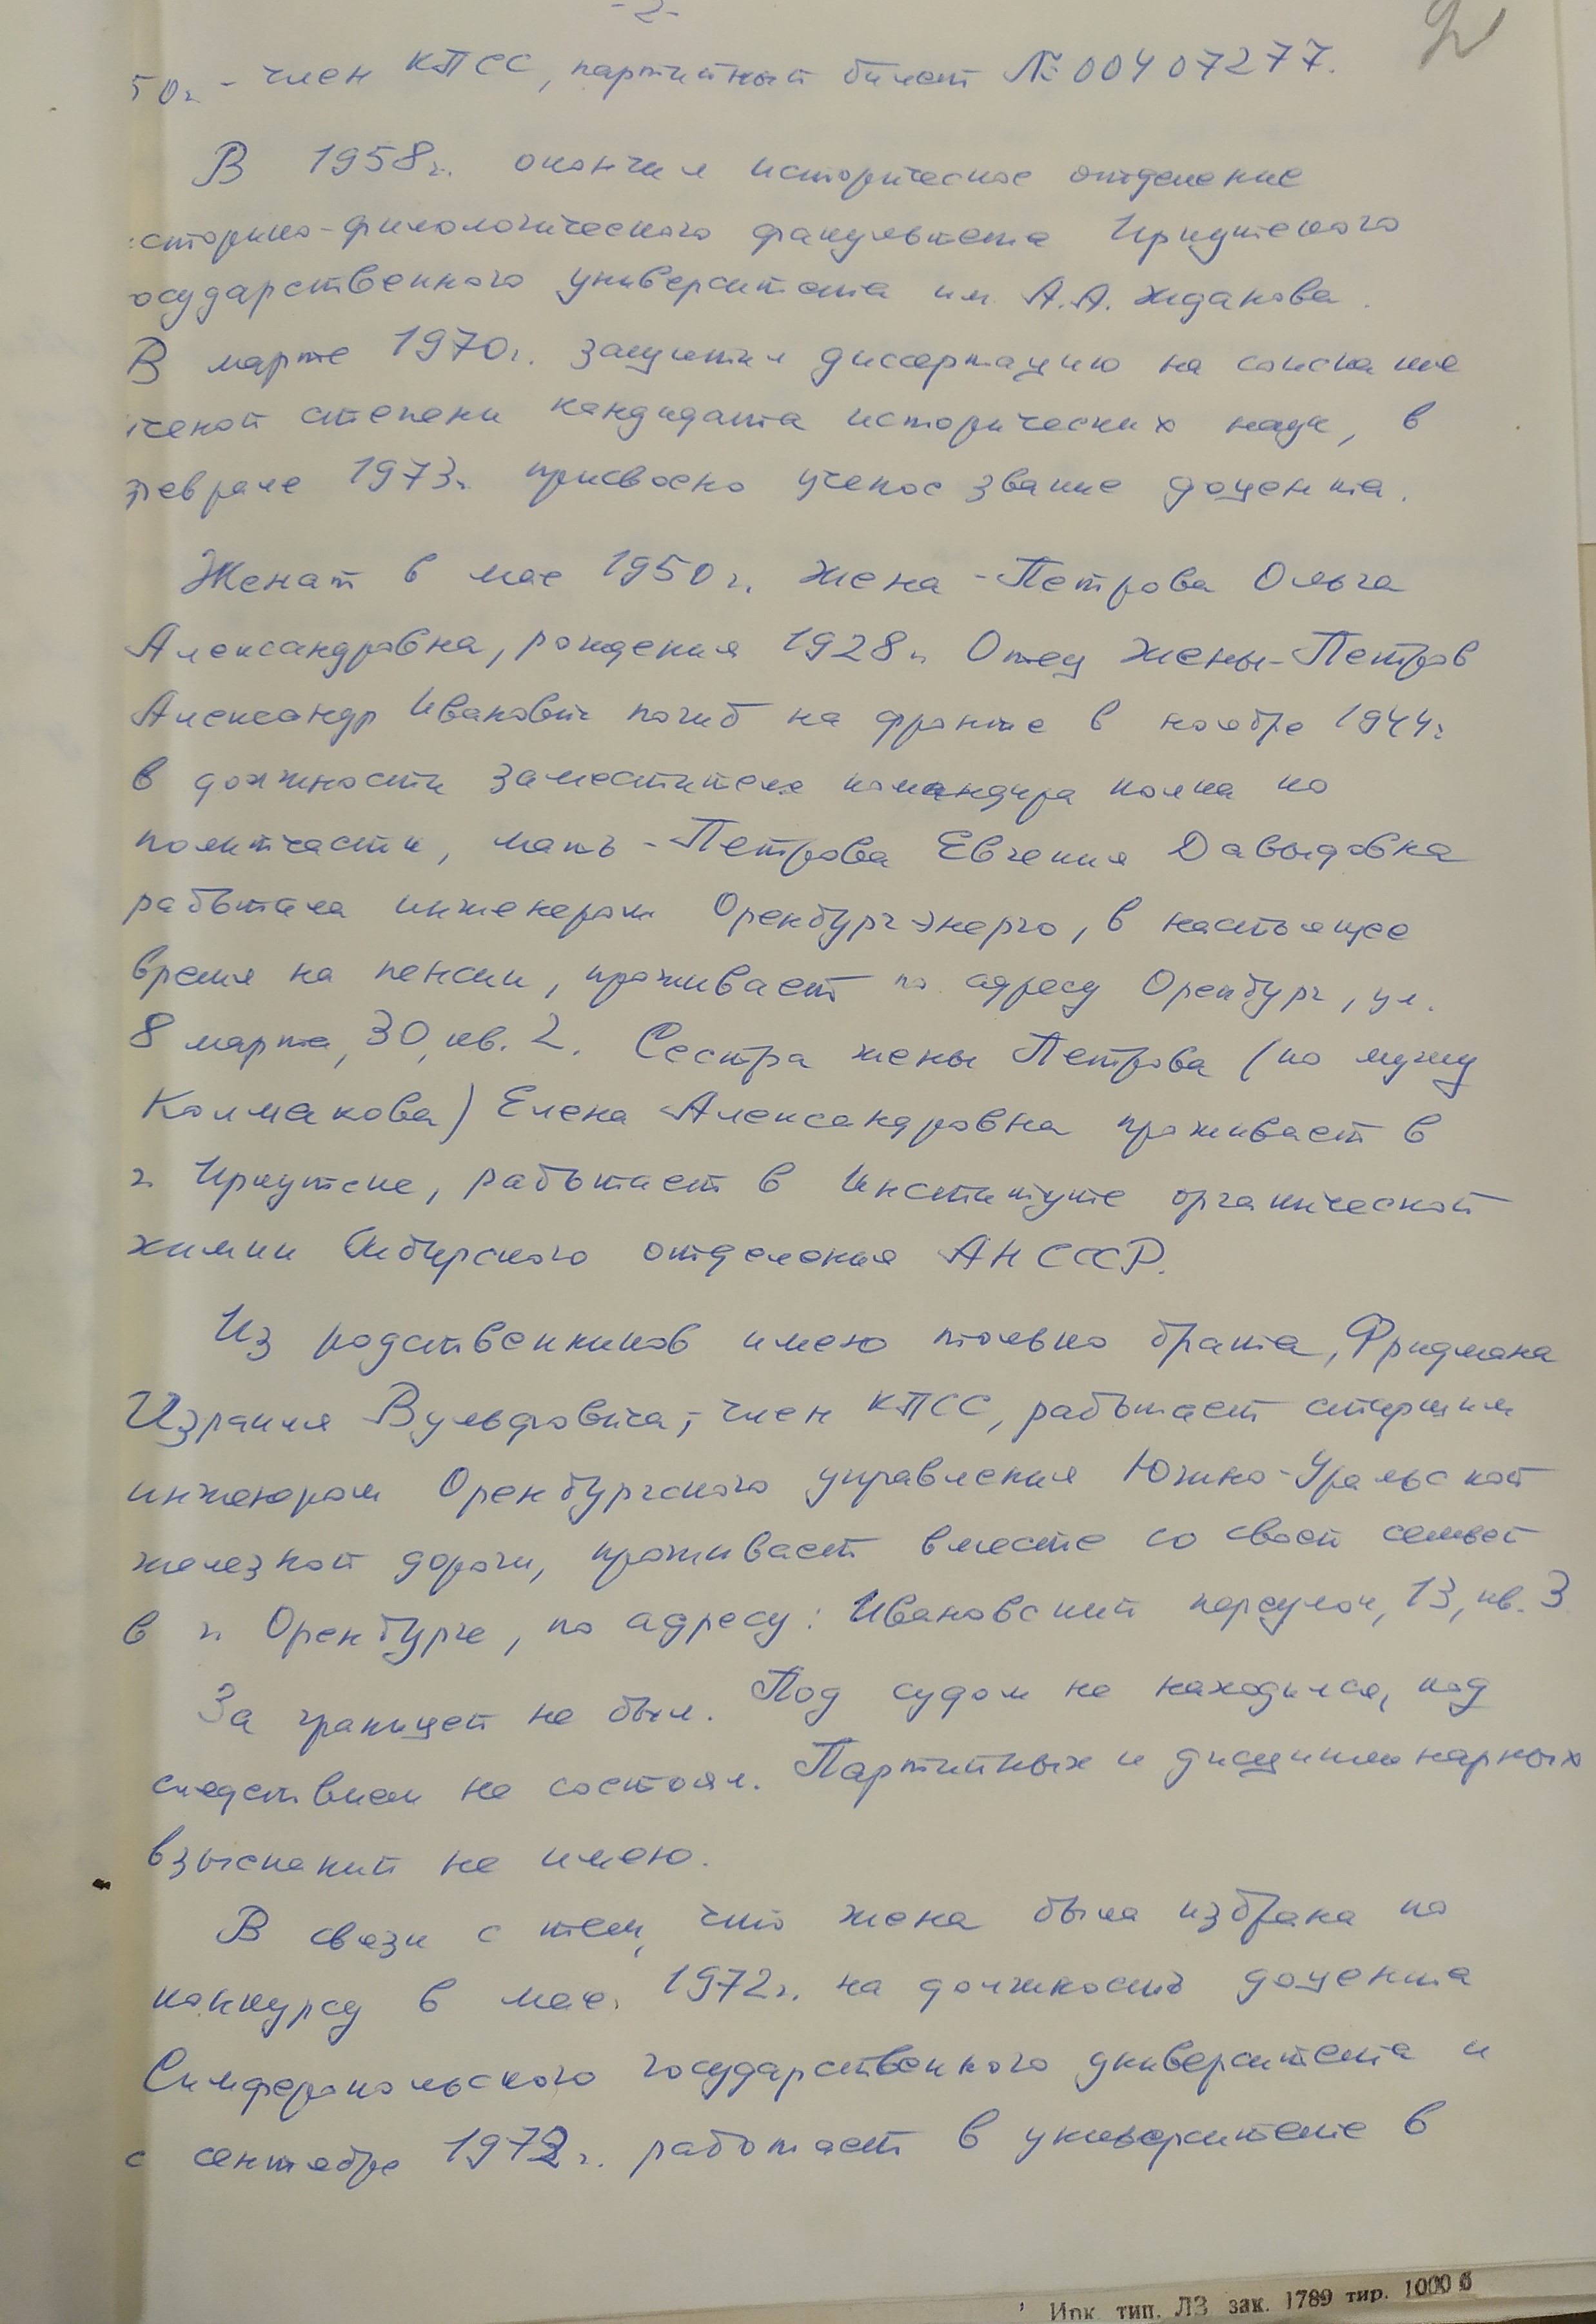 -2-
50г. - член КПСС, партийный билет № 00407277.
В 1958г. окончил историческое отделение
сторико-филологического факультета Иркутского
осударственного университета им. А.А. Жданова.
В марте 1970г. защитил диссертацию на соискание
ченой степени кандидата исторических наук, в
феврале 1973г. присвоено ученое звание доцента.
Женат в мае 1950г. Жена - Петрова Ольга
Александровна, рождения 1928г. Отец жены - Петров
Александр Иванович погиб на фронте в ноябре 1944г
в должности заместителя командира полка по
политчасти, мать - Петрова Евгения Давыдовна
работала инженером Оренбургэнерго, в настоящее
время на пенсии, проживает по адресу Оренбург, ул.
8 марта, 30, кв. 2. Сестра жены Петрова (по мужу
Колмакова) Елена Александровна проживает в
г. Иркутске, работает в Институте органической
химии Сибирского отделения АН СССР.
Из родственников имею только брата, Фридмана
Израиля Вульфовича, член КПСС, работает старшим
инженером Оренбургского управления Южно-Уральской
железной дороги, проживает вместе со своей семьей
в г. Оренбурге, по адресу: Ивановский переулок, 13, кв. 3
За границей не был. Под судом не находился, под
следствием не состоял. Партийных и дисциплинарных
взысканий не имею.
В связи с тем, что жена была избрана по
конкурсу в мае 1972г. на должность доцента
Симферопольского государственного университета и
с сентября 1972г. работает в университете в
Ирк. тип. ЛЗ зак. 1789 тир. 1000 б